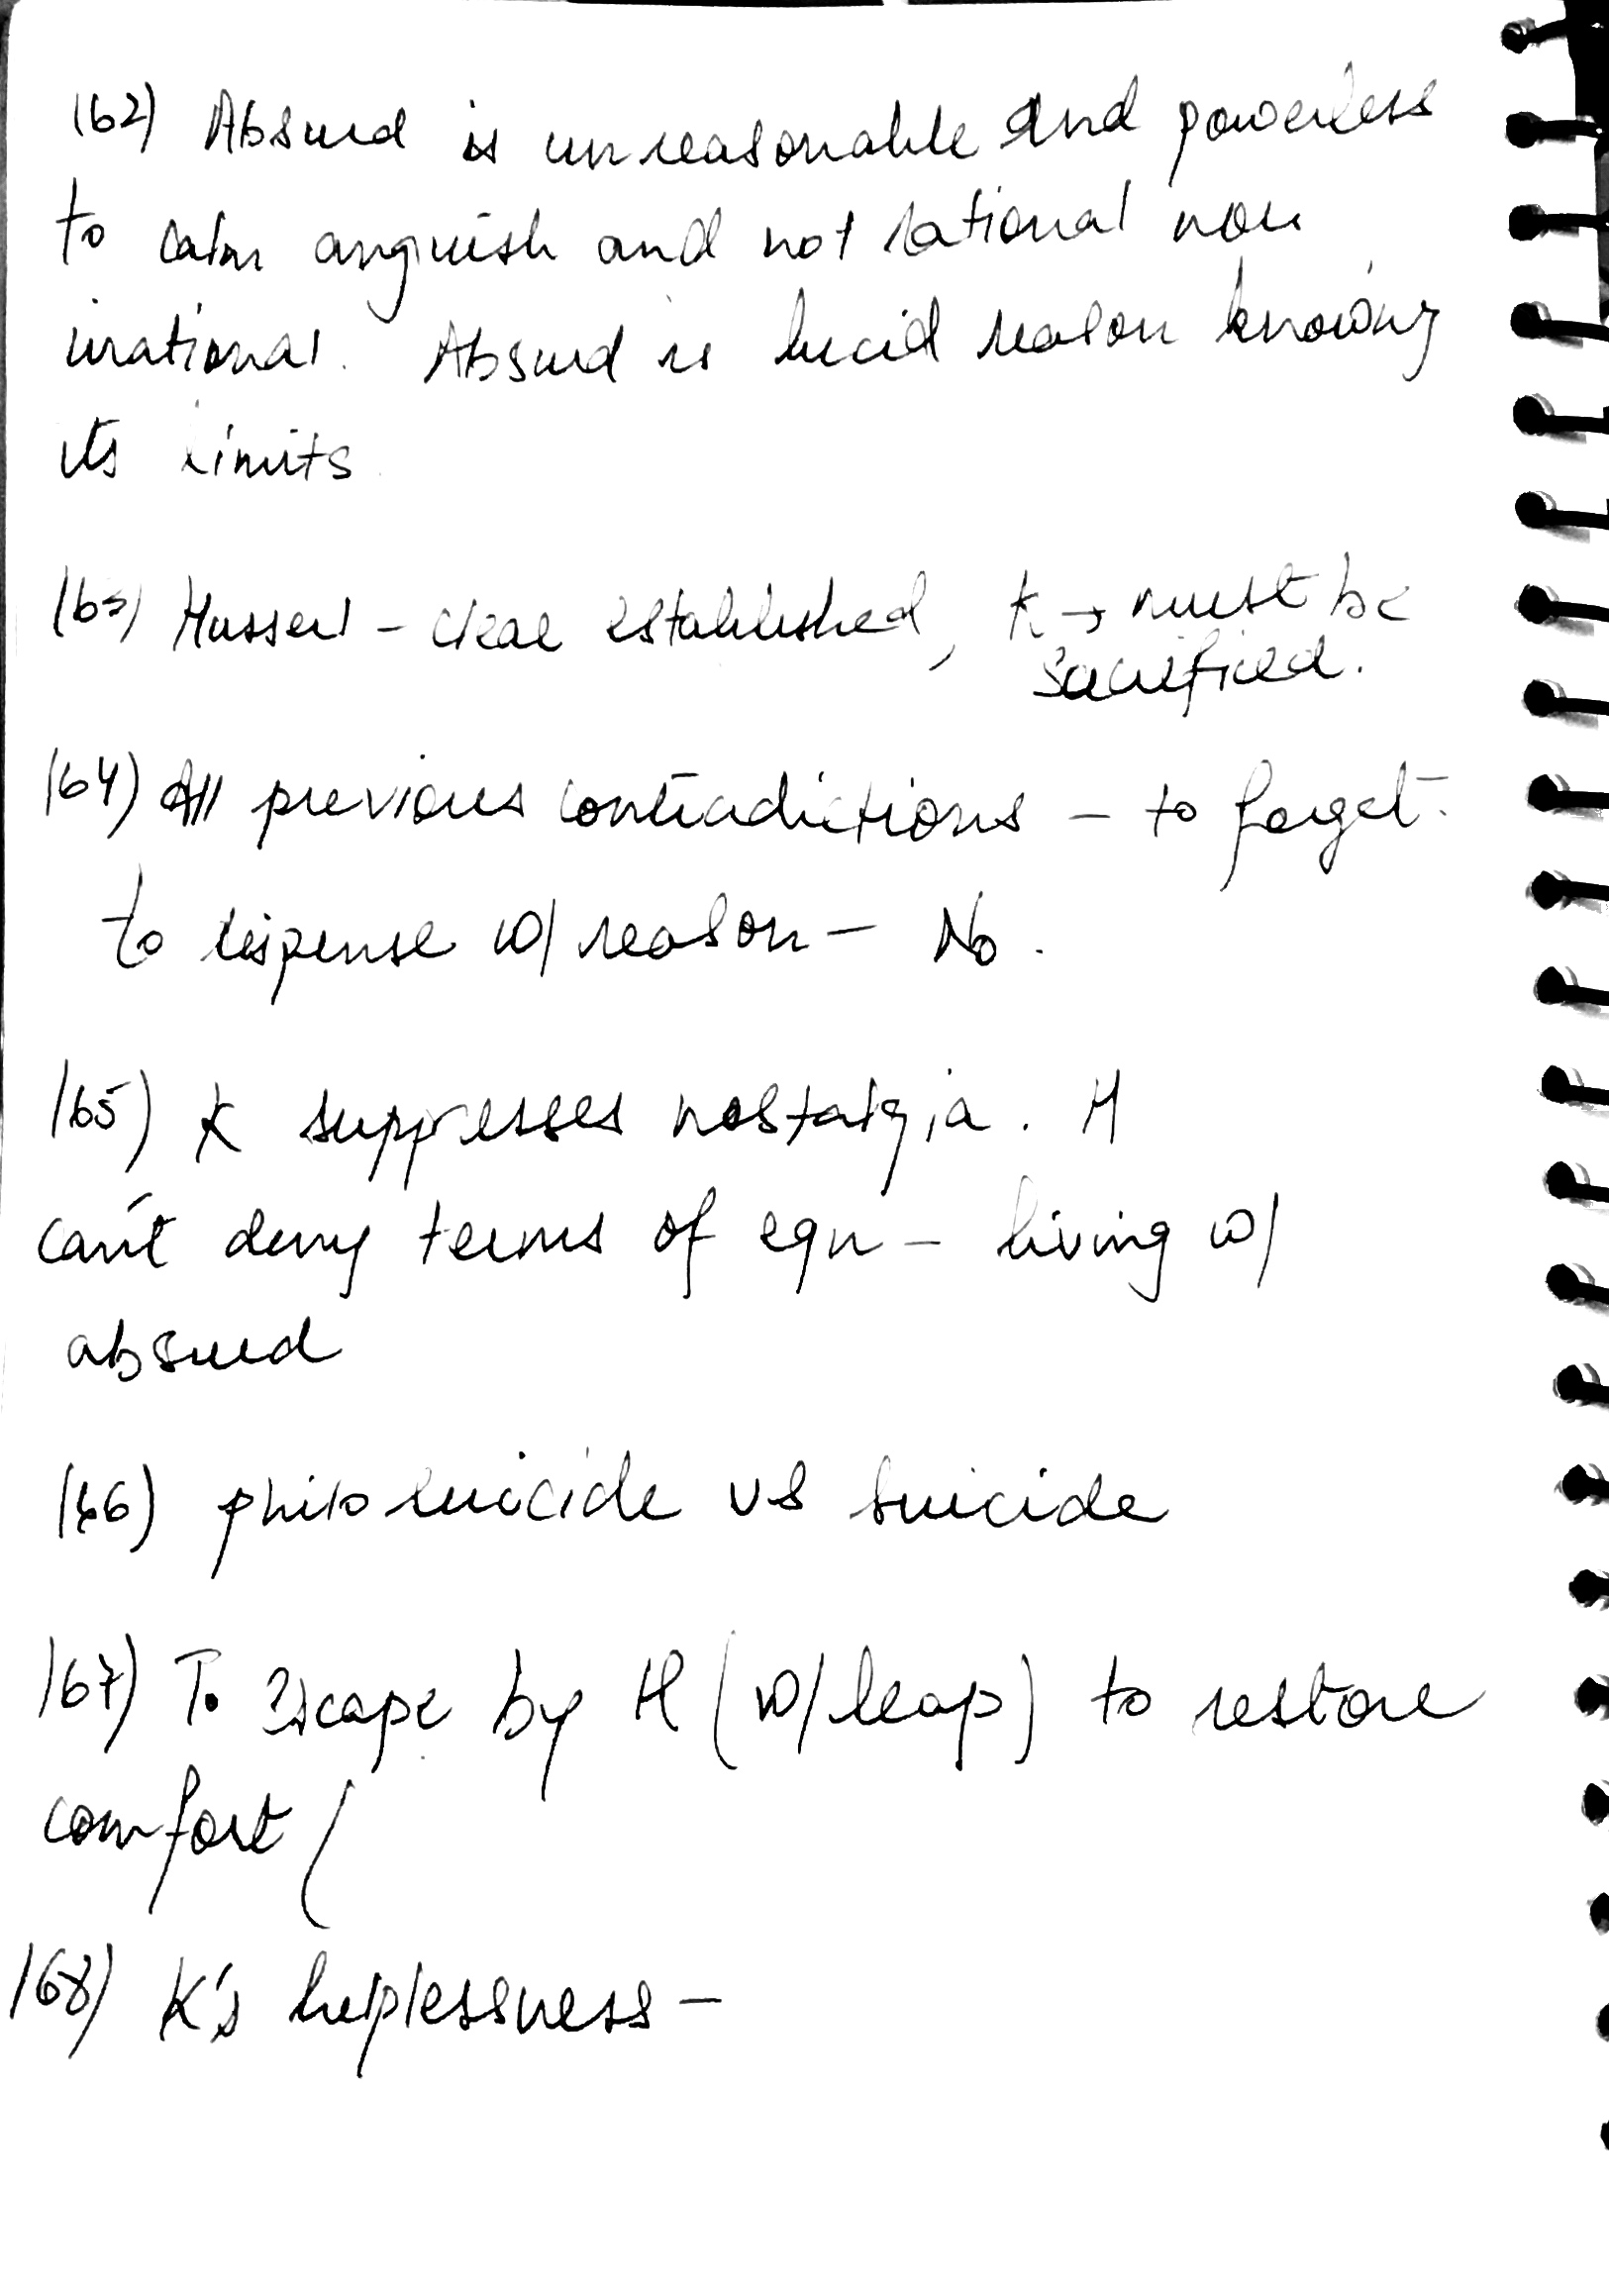 162) Absurd is unreasonable and powerless
to calm anguish and not rational nor
irrational. Absurd is lucid reason knowing
its limits
163) Husserl - clear established, K → must be
sacrified.
164) All previous contradictions - to forget.
to dispense w/ reason - No.
165) K suppresses nostalgia. H
can't deny terms of eqn - living w/
absurd
166) philo suicide vs suicide
167) To Escape by H (w/ leap) to restore
comfort (
168) K's helplessness -